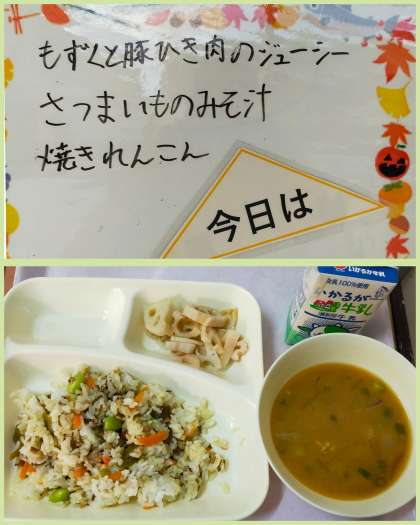 もずくと豚ひき肉のジューシー
さつまいものみそ汁
焼きれんこん
今日は
いかるが牛乳
生乳100%使用
いかるが
牛乳